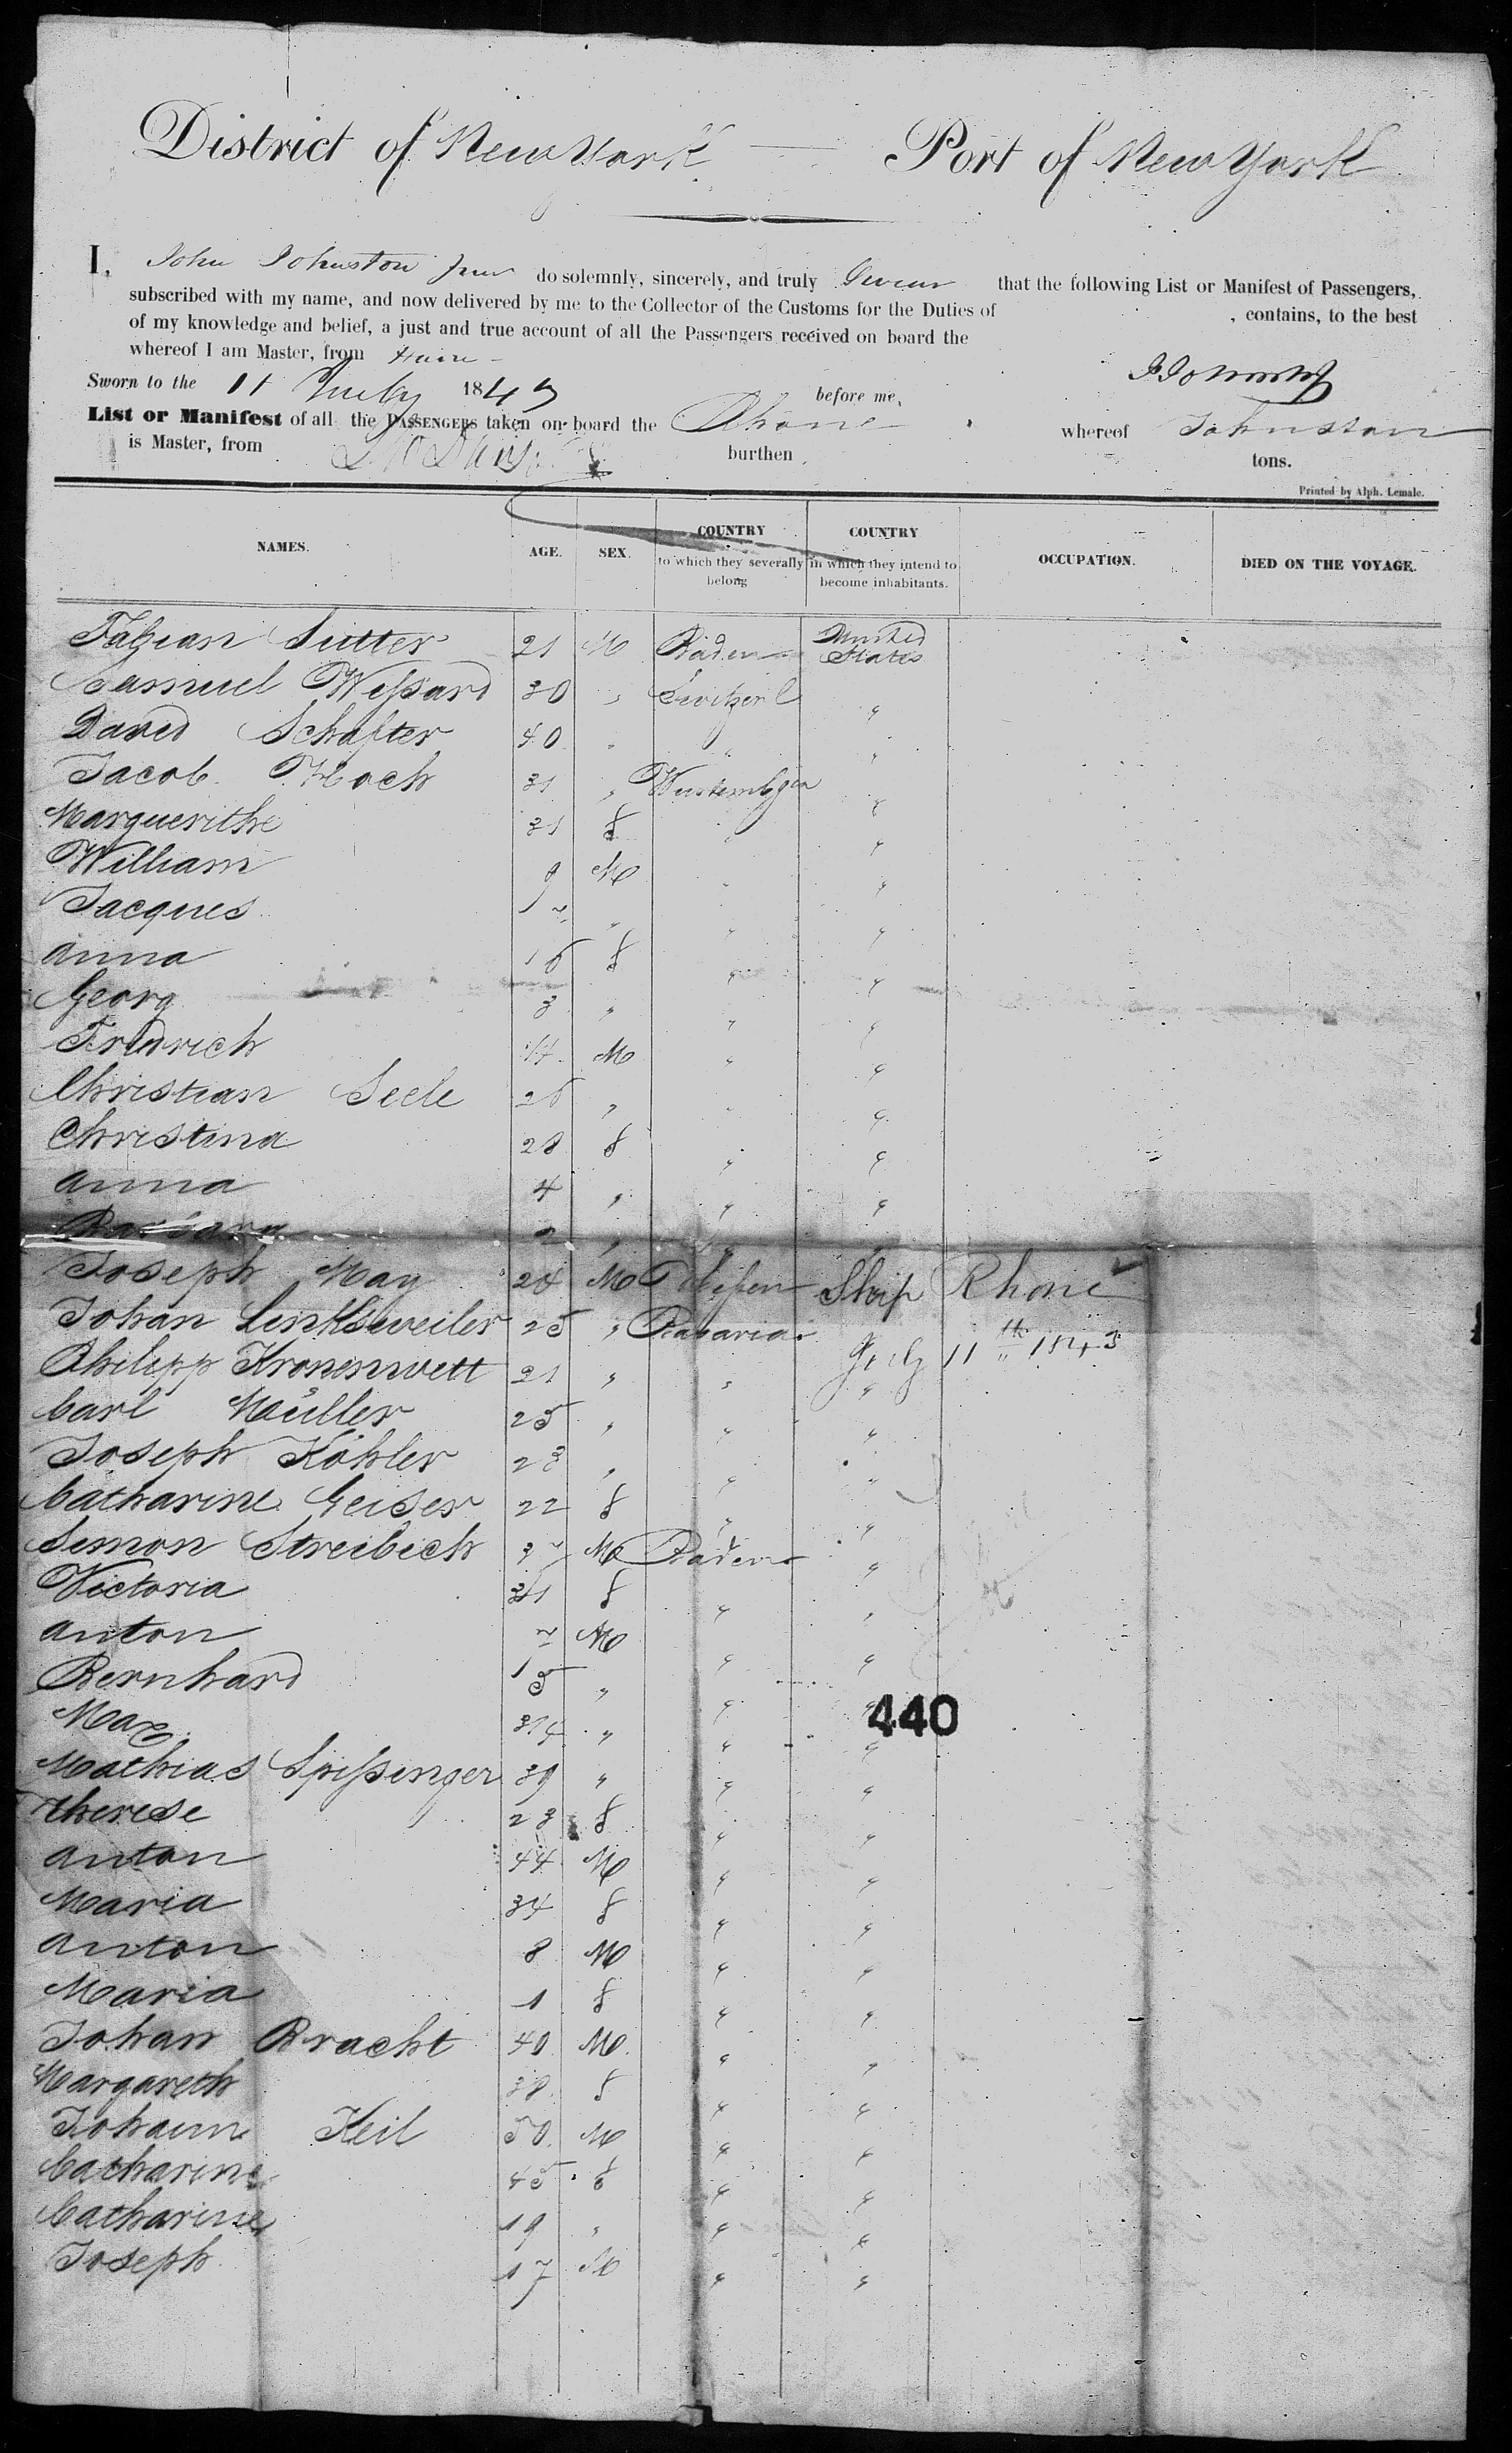 District of New York — Port of New York
I, John Johnston Junr do solemnly, sincerely, and truly Swear that the following List or Manifest of Passengers,
subscribed with my name, and now delivered by me to the Collector of the Customs for the Duties of , contains, to the best
of my knowledge and belief, a just and true account of all the Passengers received on board the
whereof I am Master, from Havre
Sworn to the 11 July 1843 before me,
List or Manifest of all the PASSENGERS taken on board the Rhone whereof Johnston
is Master, from burthen tons.
Printed by Alph. Lemale.
NAMES. AGE. SEX. COUNTRY to which they severally belong COUNTRY in which they intend to become inhabitants. OCCUPATION. DIED ON THE VOYAGE.
Fabian Sutter 21 M Baden United States
Samuel Weßard 30 " Switzerl "
David Schafter 40 " " "
Jacob Hoch 31 " "
Marguerithe 31 f " "
William 9 M " "
Jacques " " "
Anna f " "
Georg 3 " " "
Fridrich M " "
Christian Seele 26 " " "
Christina 28 f " "
Anna 4 " " "
Barbara 2 " "
Joseph May 24 M Ship Rhone
Johan Linksweiler 25 " Bavaria July 11th 1843
Philipp Kronenwett 21 " " "
Carl Müller 25 " " "
Joseph Köhler 23 " " "
Catharine Geiser 22 f " "
Simon Streibich 37 M Baden "
Victoria 31 f " "
Anton 7 M " "
Bernhard 5 " " "
Max 3/4 " " "
440
Mathias Spißinger 39 " " "
Therese 23 f " "
Anton 44 M " "
Maria 34 f " "
Anton 8 M " "
Maria 1 f " "
Johan Bracht 40 M " "
Margareth 38 f " "
Johann Keil 50 M " "
Catharine 45 f " "
Catharine 19 " " "
Joseph 17 M " "